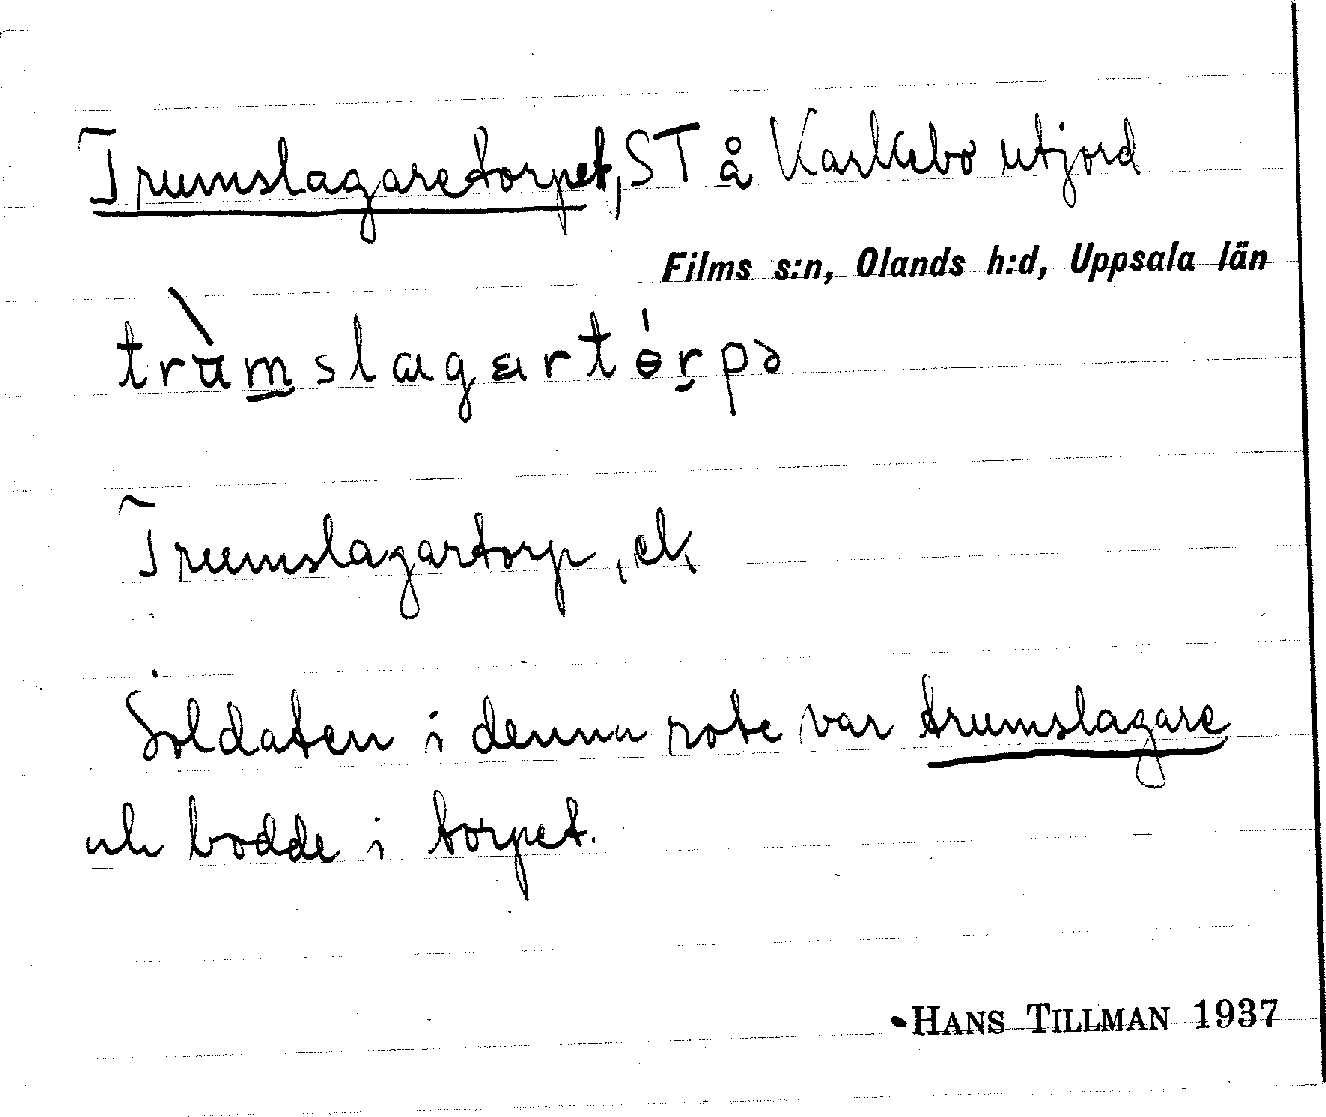 Trumslagaretorpet, ST å Karlebo utjord
Films s:n, Olands h:d, Uppsala län
trùm̲slagartórpə
Trumslagartorp, ek
Soldaten i denna rote var trumslagare
och bodde i torpet.
HANS TILLMAN 1937